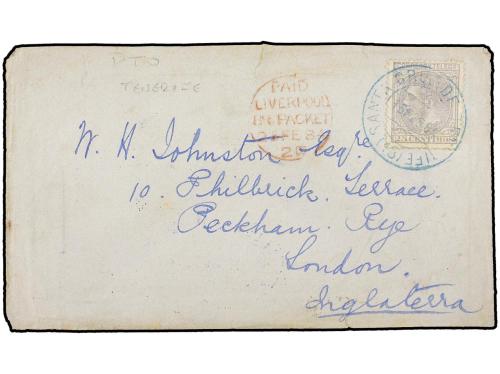 TENERIFE
PAID
LIVERPOOL
PACKET
FE
SANTA CRUZ DE
W. H. Johnston Esqre.
10. Philbrick Terrace.
Peckham Rye
London.
Inglaterra